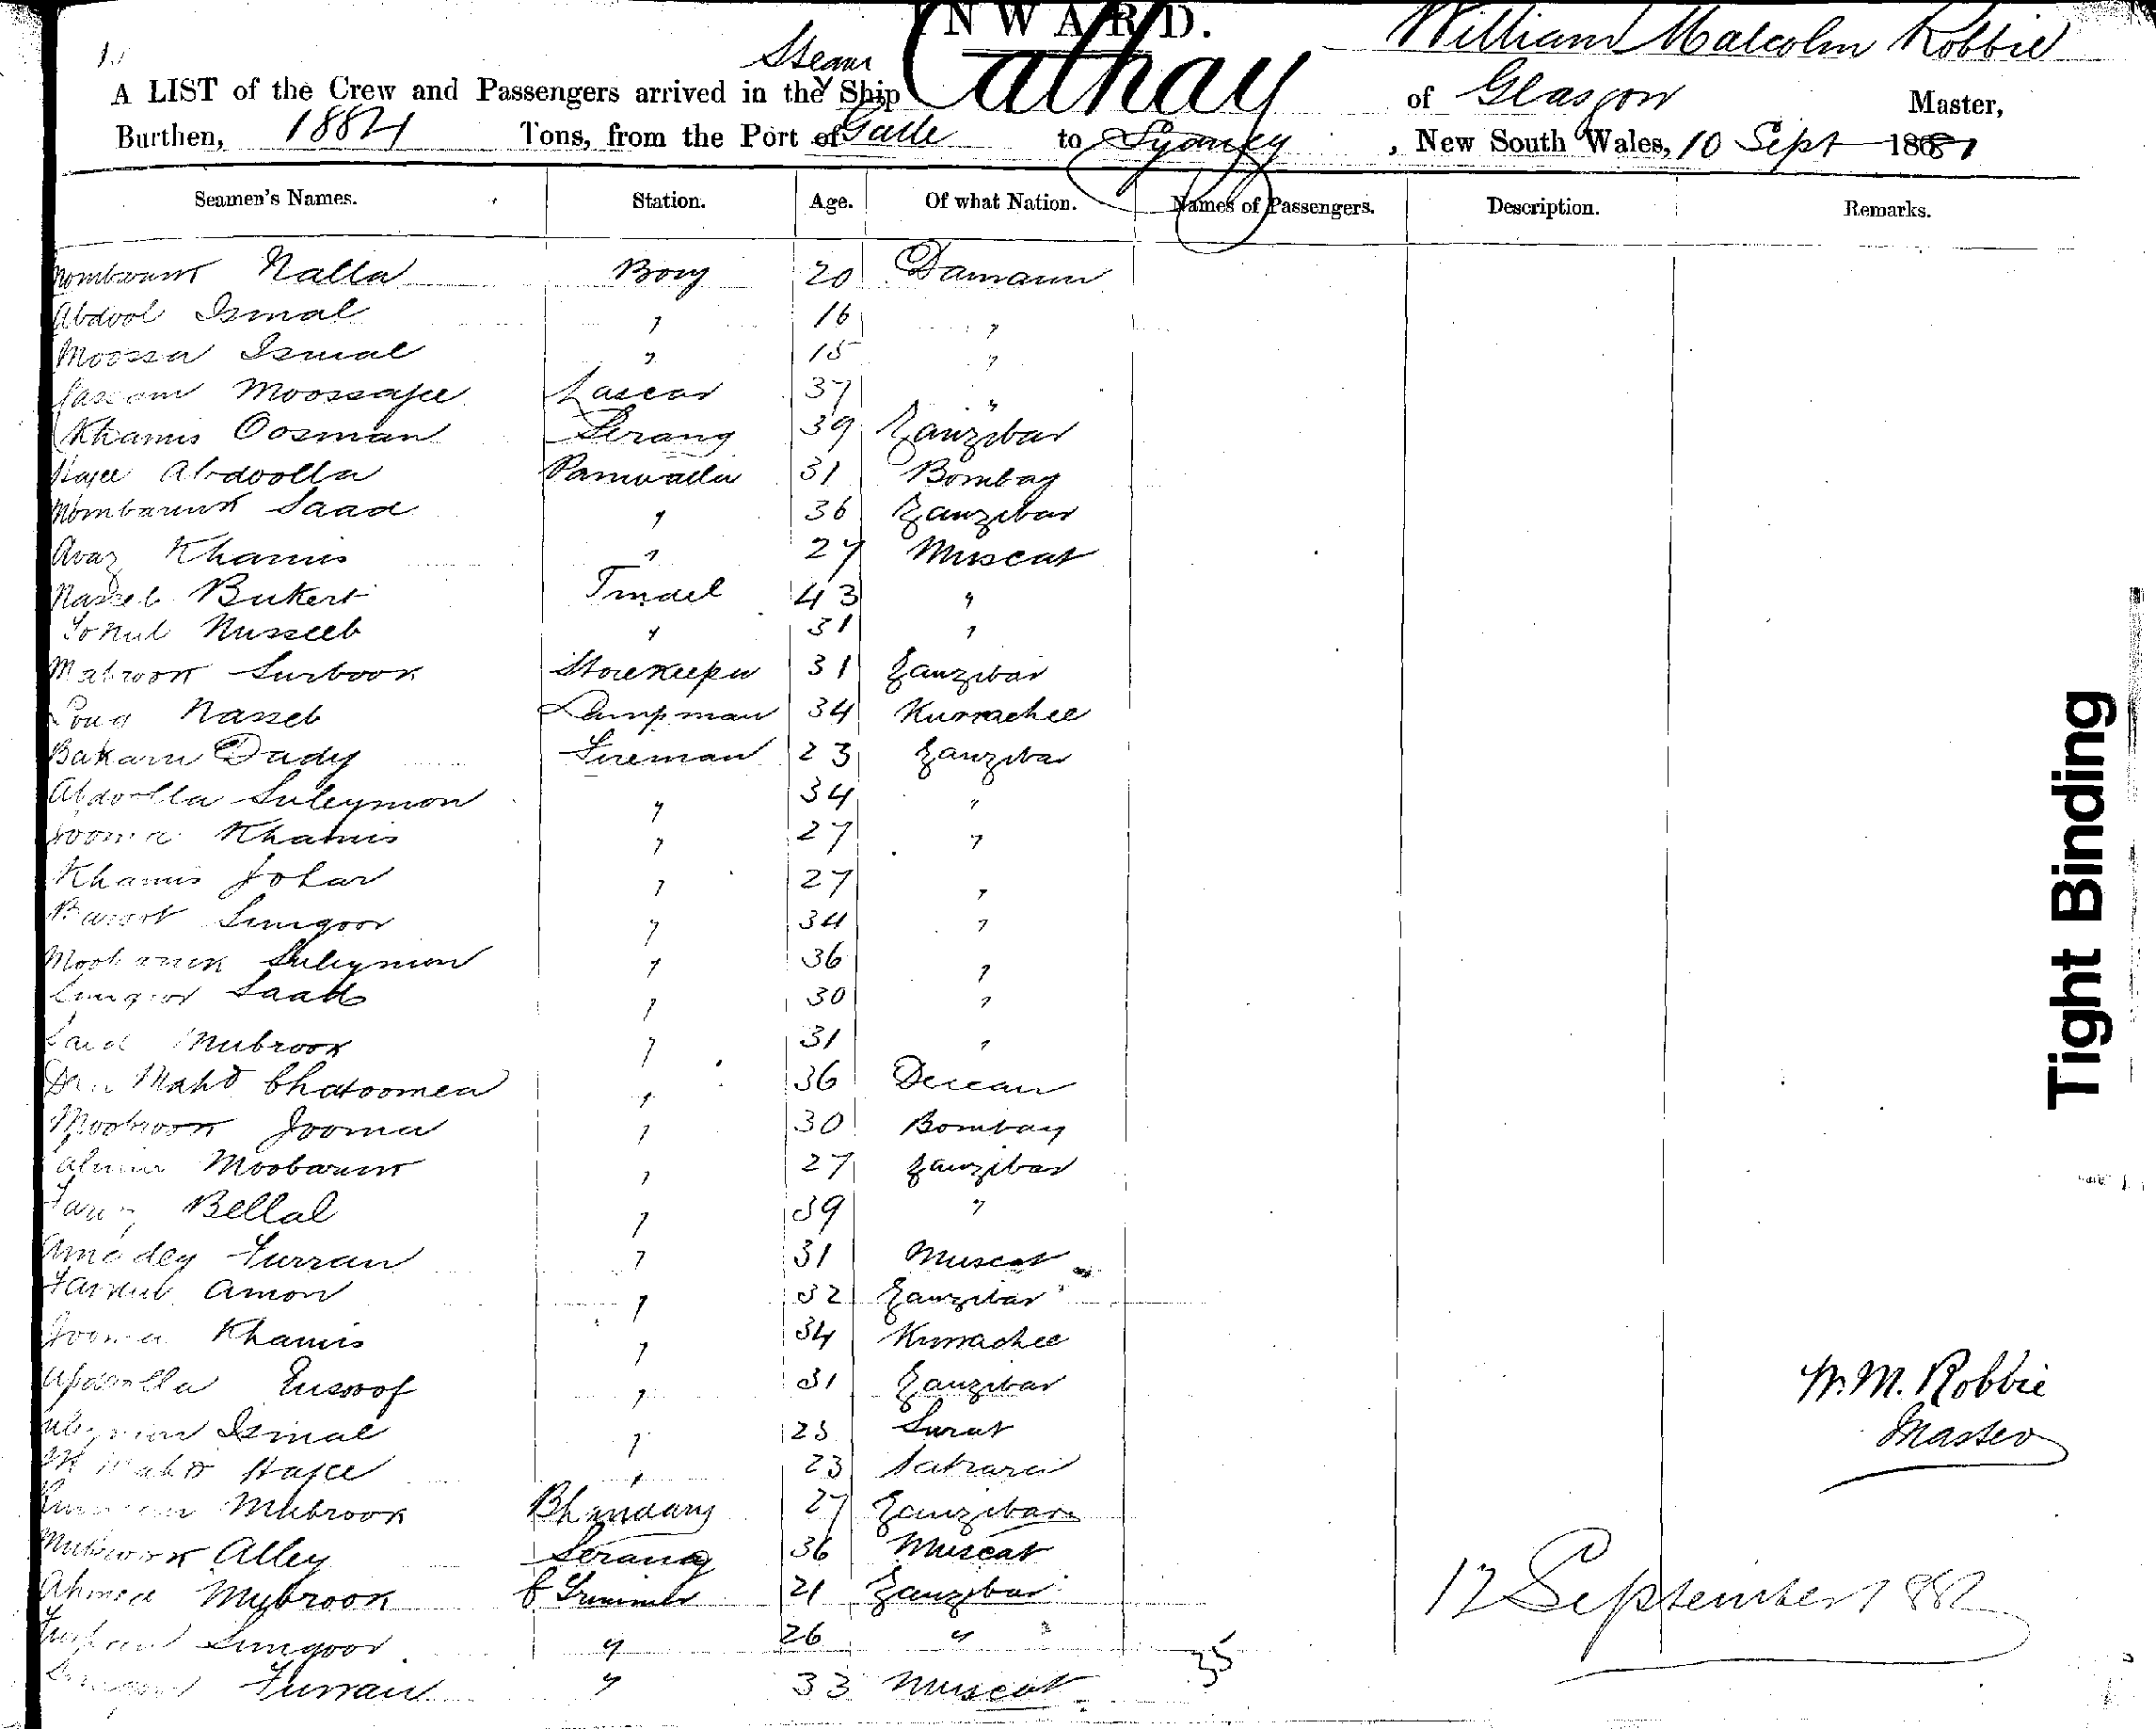 INWARD.
1.
Steam William Malcolm Robbie
A LIST of the Crew and Passengers arrived in the Ship Cathay of Glasgow Master,
Burthen, 1884 Tons, from the Port of Galle to Sydney, New South Wales, 10 Sept 1881
Seamen's Names. Station. Age. Of what Nation. Names of Passengers. Description. Remarks.
Nalla Boy 20 Damaun
Abdool Ismal " 16 "
Moossa Ismal " 15 "
Moossajee Lascar 37 "
Khamis Oosman Serang 39 Zanzibar
Hajee Abdoolla 31 Bombay
Mombaruk Saad " 36 Zanzibar
Avaz Khamis " 27 Muscat
Nasseb Bukert Tindel 43 "
Nusseeb " 31 "
Mabrook Surboor Storekeeper 31 Zanzibar
Nasseb Lampman 34 Kurrachee
Bakam Dady Fireman 23 Zanzibar
Abdoolla Suleymon " 34 "
Jooma Khamis " 27 "
Khamis Johar " 27 "
Sungoor " 34 "
Suleymon " 36 "
Sungoor Saad " 30 "
Said Mubrook " 31 "
Mahd Chatoomea " 36 Deccan
Moobrook Jooma " 30 Bombay
Moobaruk " 27 Zanzibar
Bellal " 39 "
Furran " 31 Muscat
Amon " 32 Zanzibar
Jooma Khamis " 34 Kurrachee
Abdoolla Eusoof " 31 Zanzibar
W. M. Robbie
Suleymon Ismal " 23 Surat
Master
Hajee " 23
Mubrook Bhandary 27 Zanzibar
Mubrook Alley Serang 36 Muscat
Ahmed Mybrook C Trimmer 21 Zanzibar
12 September 1882
Sungoor " 26 "
35
Furran " 33 Muscat
Tight Binding